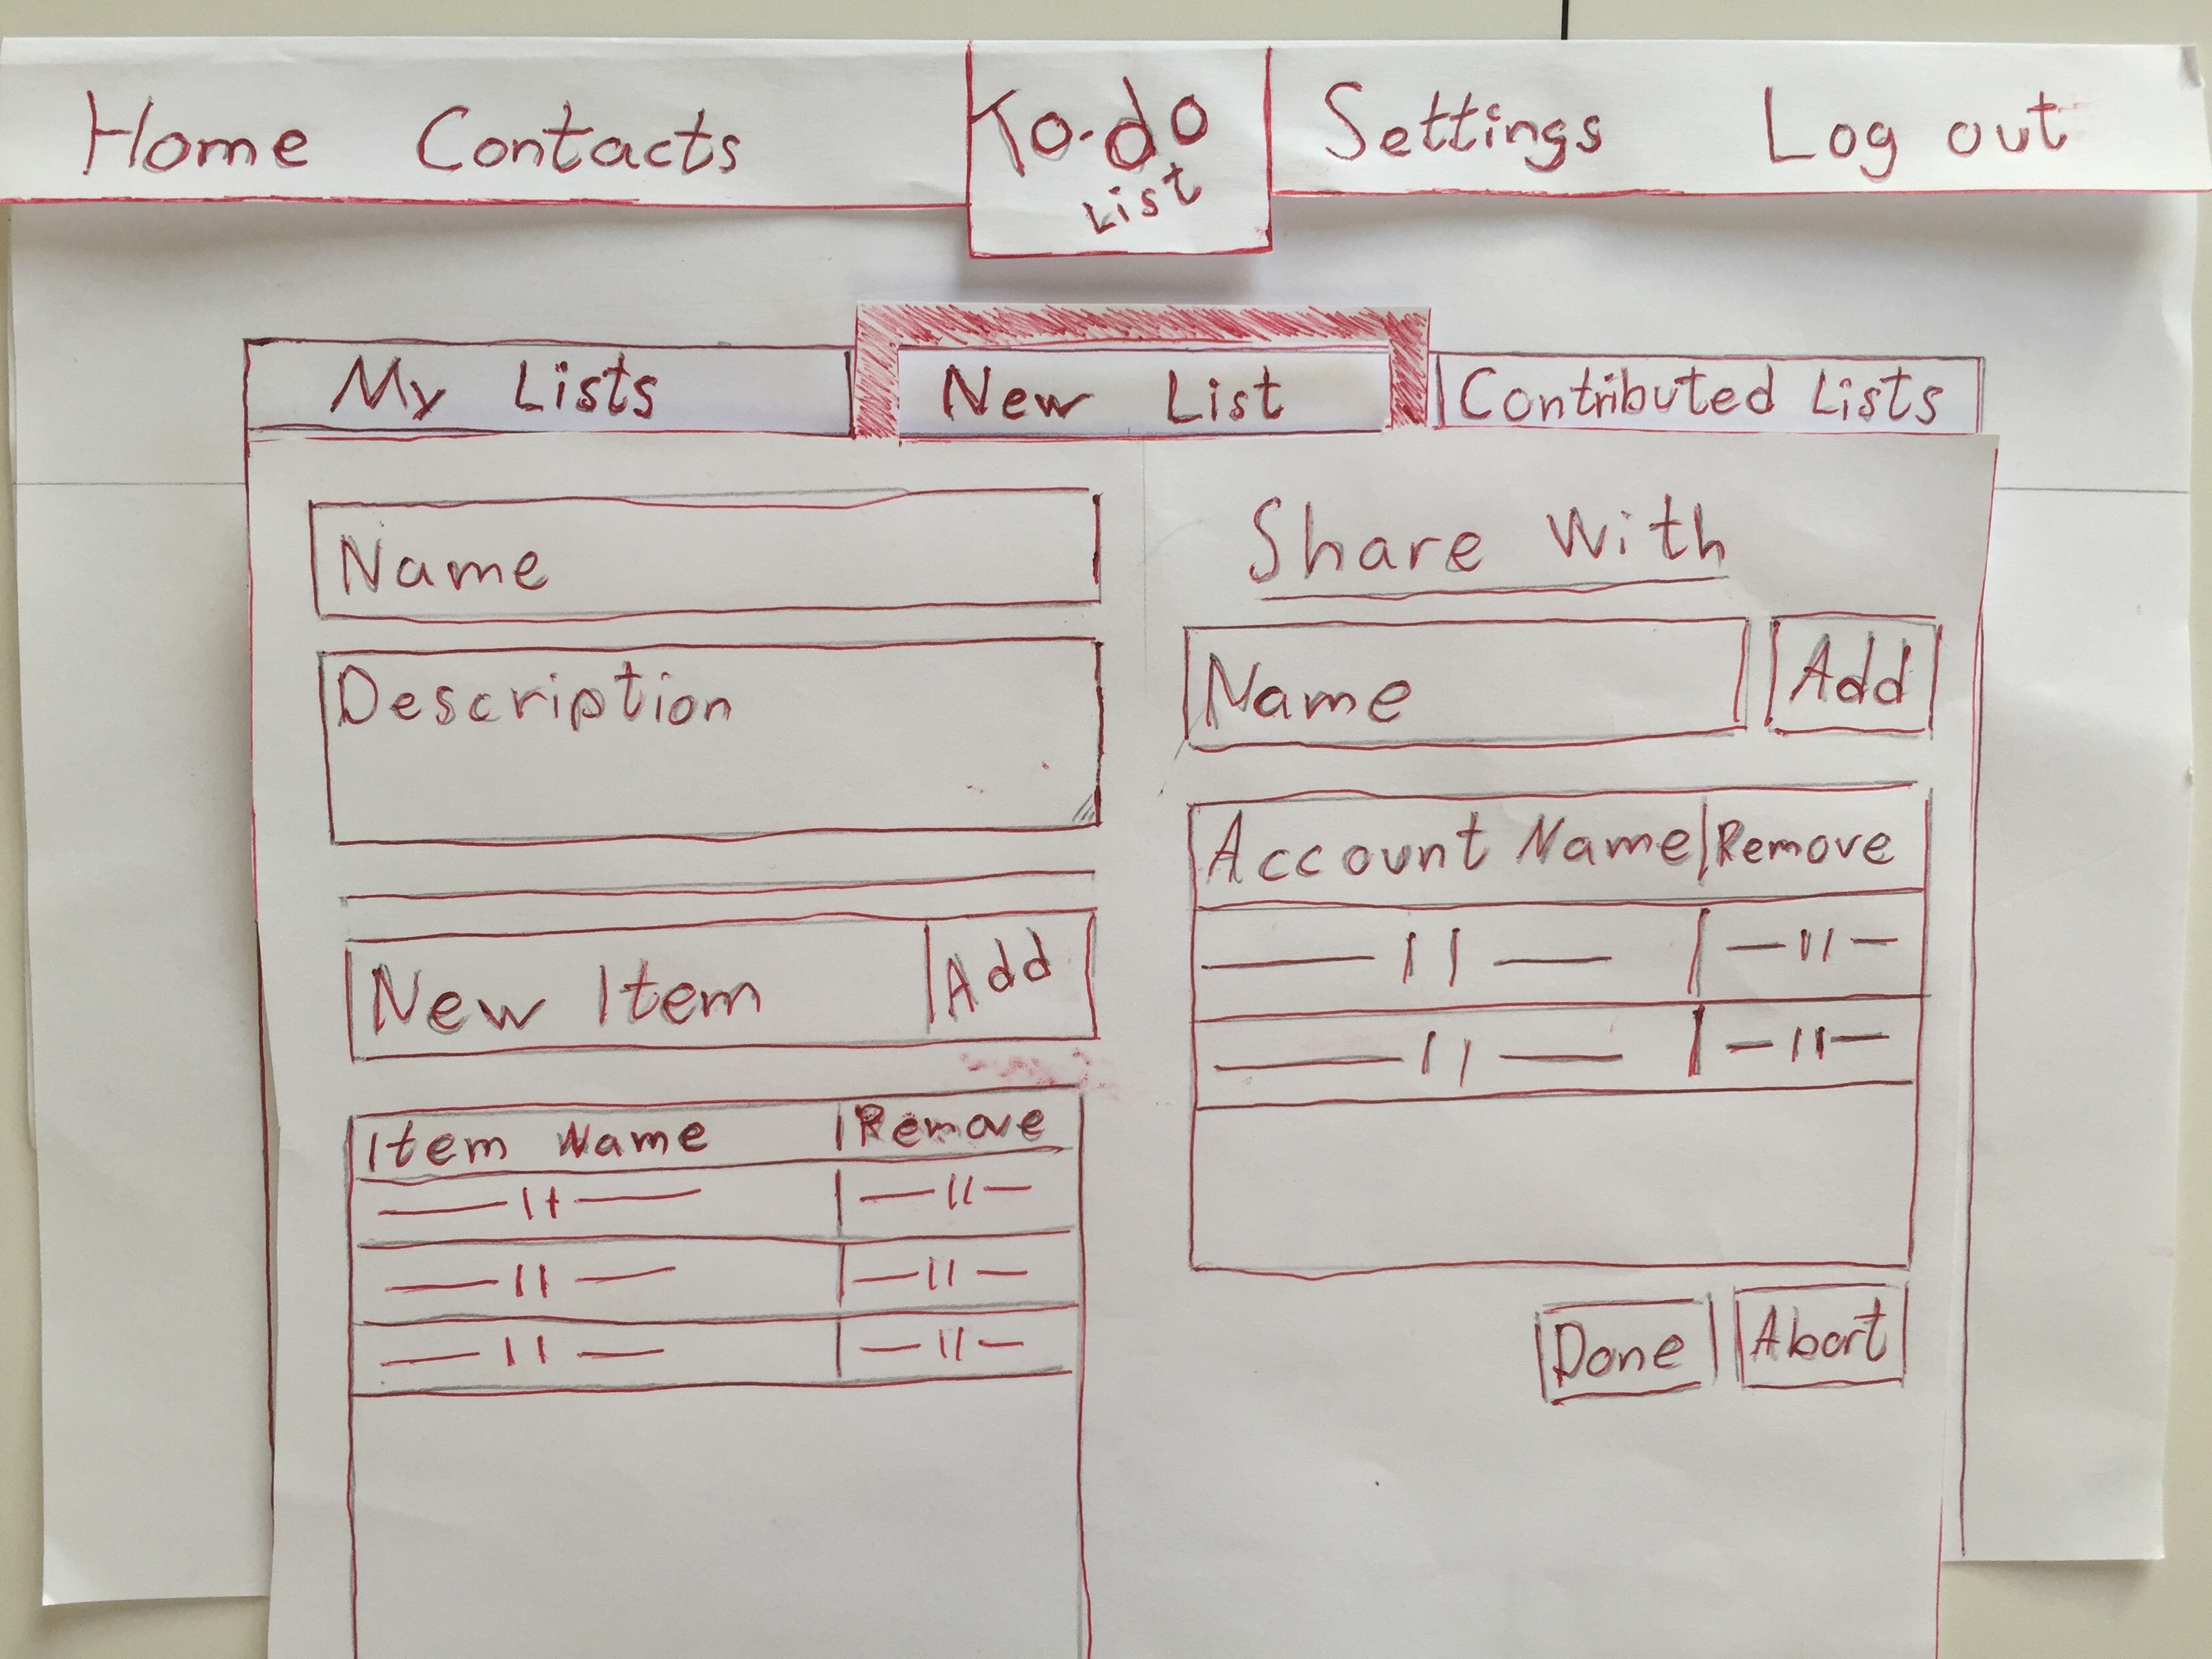 Home Contacts To-do List Settings Log out
My Lists New List Contributed Lists
Name
Description
New Item Add
Item Name Remove
—— 11 —— — 11 —
—— 11 —— — 11 —
—— 11 —— — 11 —
Share With
Name Add
Account Name Remove
—— 11 —— — 11 —
—— 11 —— — 11 —
Done Abort